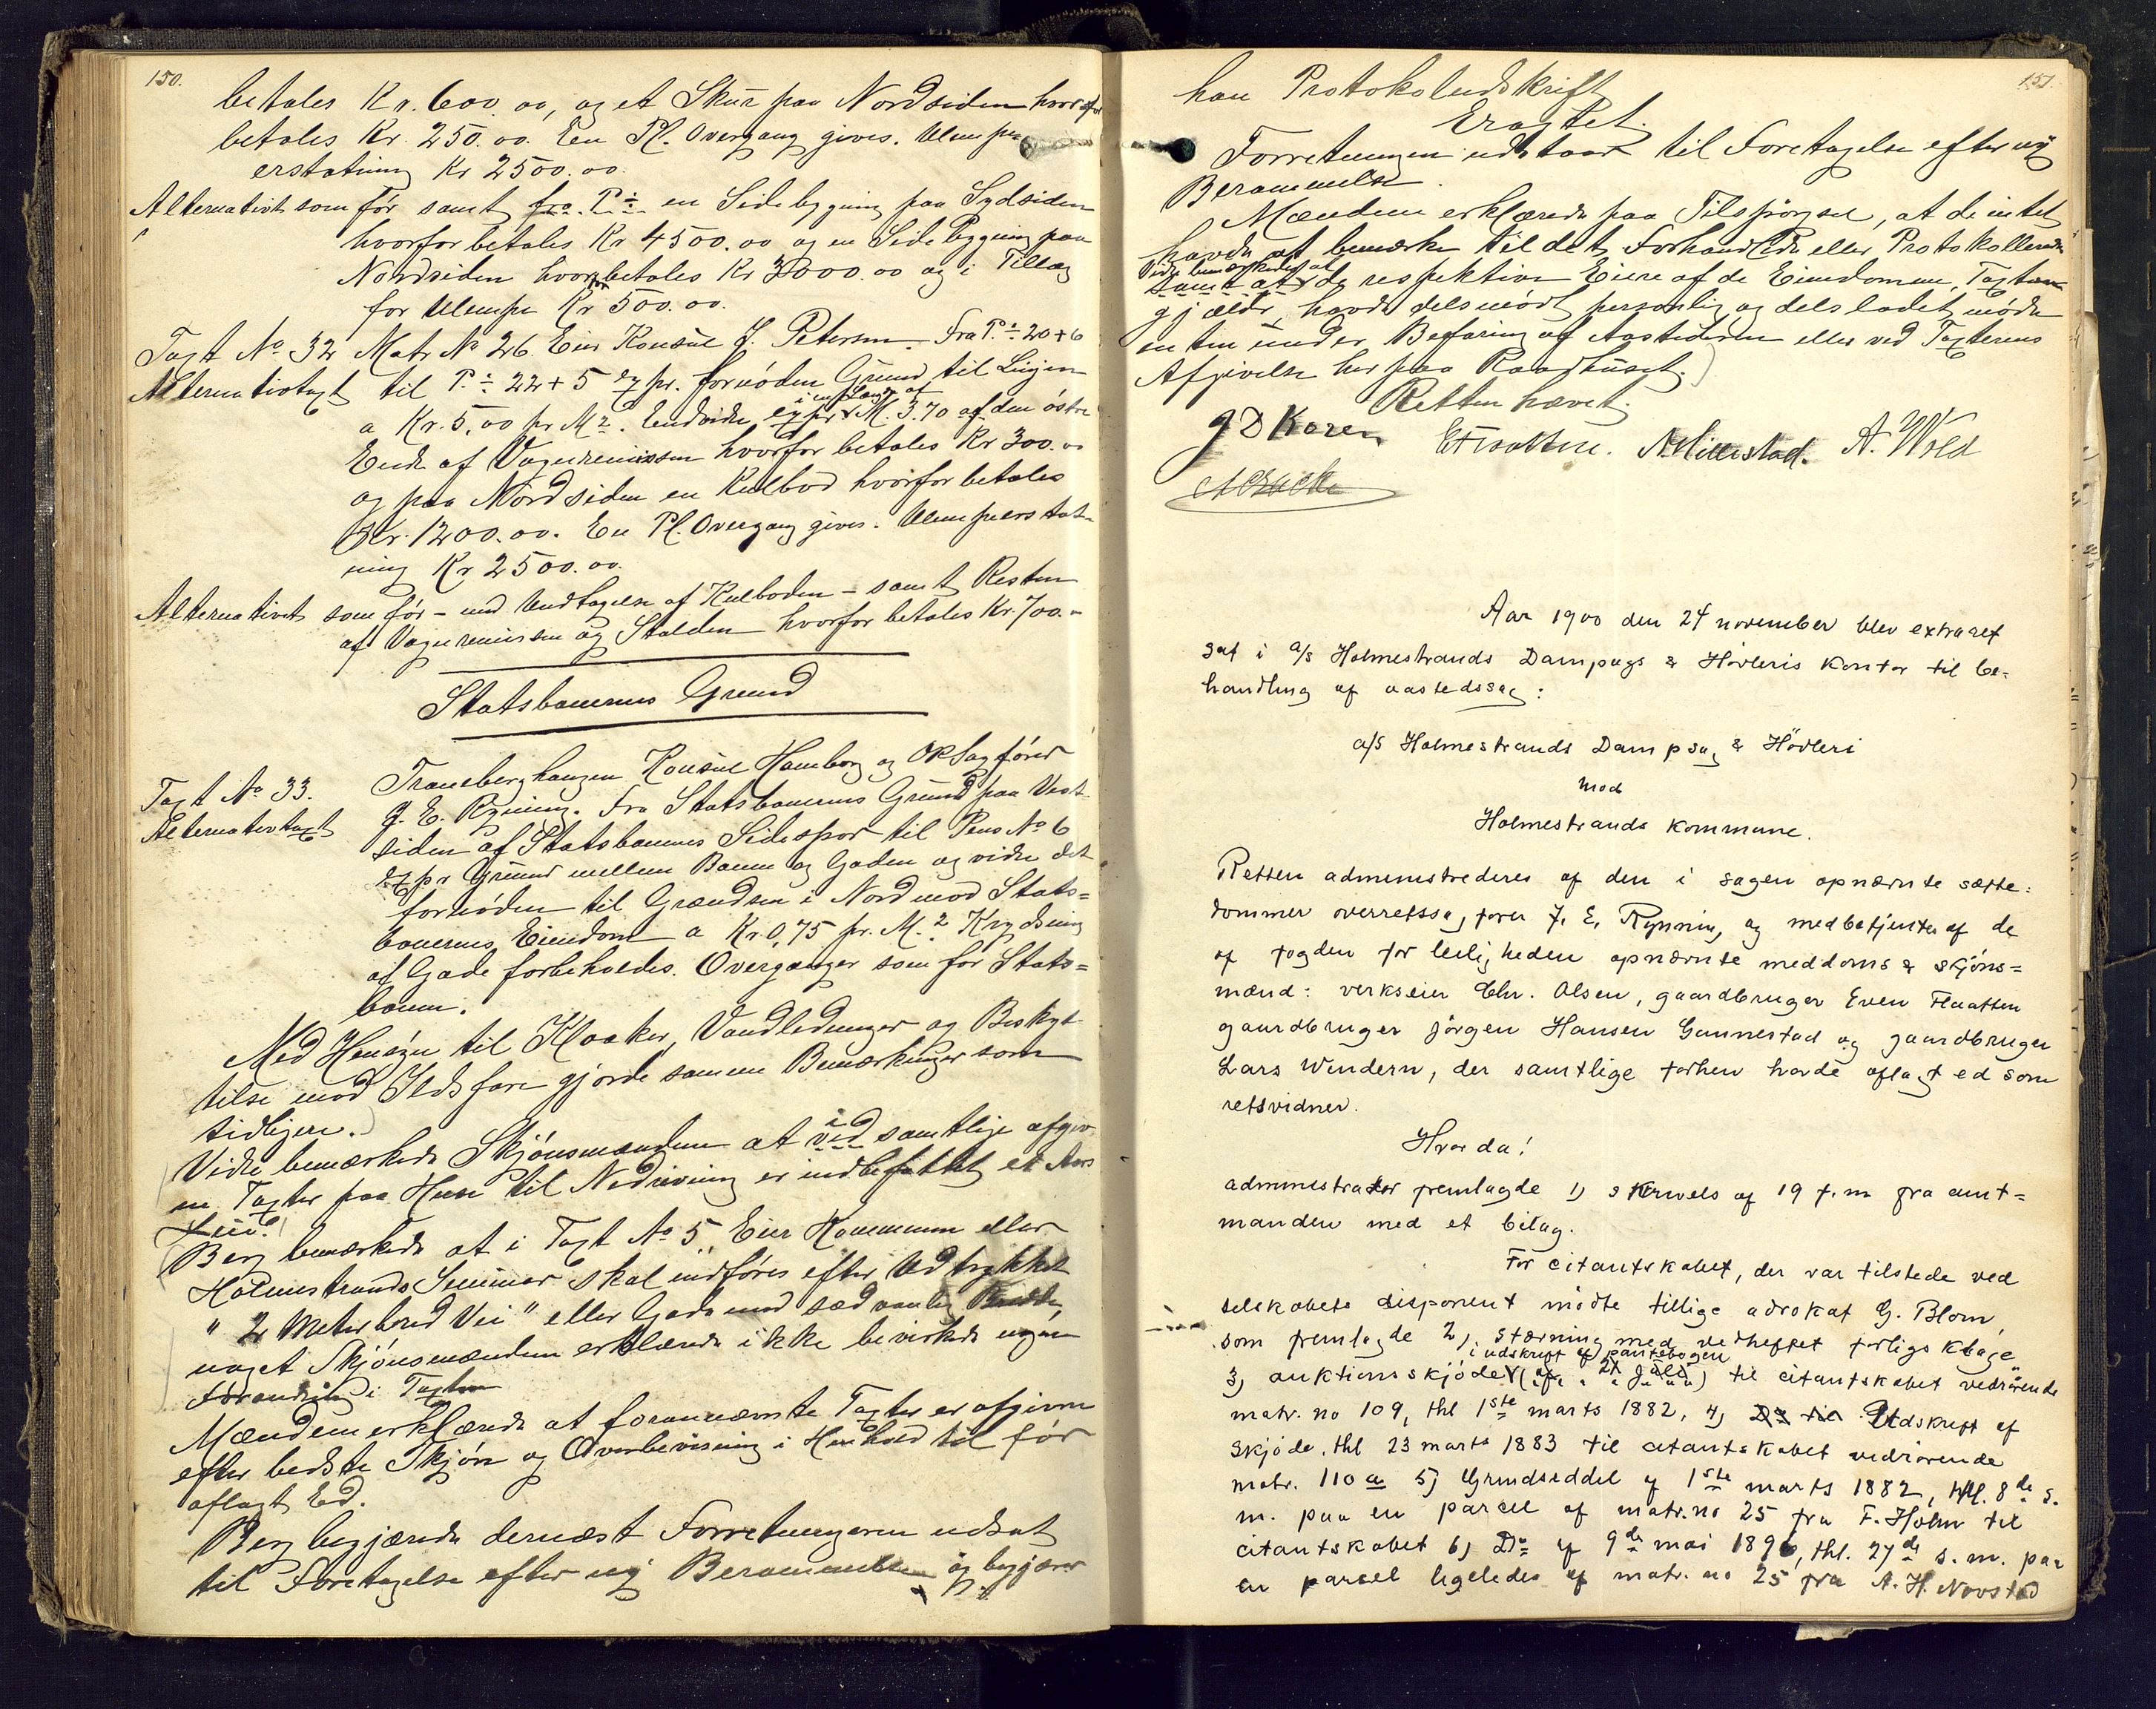 150.
betales Kr. 600.00, og et Skur paa Nordsiden hvorfor
betales Kr. 250.00. En Pl. Overgang gives. Ulempe
erstatning Kr 2500.00.
Alternativt som før samt fra P: en Sidebygning paa Sydsiden
hvorfor betales Kr 4500.00 og en Sidebygning paa
Nordsiden hvorfor betales Kr 3000.00 og i Tillæg
for Ulempe Kr 500.00.
Taxt No. 32 Matr No 26. Eier Konsul J. Petersen. Fra P: 20+6
Alternativtaxt til P: 22+5 expr. fornøden Grund til Linjen
i en Længde af
a Kr. 5,00 pr M2. Endvidre expr M. 3.70 af den östre
Ende af Vognremissen hvorfor betales Kr 300.00
og paa Nordsiden en Kulbod hvorfor betales
Kr. 1200.00. En Pl. Overgang gives. Ulempeerstat-
ning Kr 2500.00.
Alternativt som før - med Undtagelse af Kulboden - samt Resten
af Vognremissen og Stalden hvorfor betales Kr. 700.-
Statsbanernes Grund
Taxt No 33. Traneberghaugen Konsul Hamborg og ORSagfører
Alternativtaxt J. E. Rynning. Fra Statsbanernes Grund paa Vest-
siden af Statsbanens Sidespor til Pens No 6
expr Grund mellem Banen og Gaden og videre det
fornødne til Grændsen i Nord mod Stats=
banernes Eiendom a Kr. 0,75 pr. M.2 Krydsning
af Gade forbeholdes. Overgange som for Stats=
banen.
Med Hensyn til Kloaker, Vandledninger og Beskyt-
telse mod Ildsfare gjorde samme Bemærkninger som
tidligere.
Videre bemærkede Skjönsmændene at i ved samtlige afgiv-
ne Taxter paa Huse til Nedrivning er indbefattet et Aars
Leie.
Berg bemærkede at i Taxt No 5, Eier Kommunen eller
Holmestrands Seminar skal indføres efter Udtrykket
"2 Meter bred Vei" eller Gade med sædvanlig Bredde,
noget Skjönsmændene erklærede ikke bevirkede nogen
Forandring i Taxten
Mændene erklærede at forannævnte Taxter er afgivne
efter bedste Skjön og Overbevisning i Henhold til før
aflagt Ed.
Berg begjærede dernæst Forretningen udsat
til Foretagelse efter ny Berammelse og begjærer
151.
han Protokoludskrift
Eragtet.
Forretningen udstaar til Foretagelse efter ny
Berammelse.
Mændene erklærede paa Tilspørgsel, at de intet
havde at bemærke til det Forhandlede eller Protokollerede
Videre bemærkedes at
samt at de respektive Eiere af de Eiendomme, Taxterne
gjælder, havde dels mødt personlig og dels ladet møde
enten under Befaring af Aastederne eller ved Taxternes
Afgivelse her paa Raadhuset.)
Retten hævet.
E Flaatten. A. Wold
Aar 1900 den 24 november blev extraret
sat i a/s Holmestrands Dampsags & Høvleris kontor til be-
handling af aastedssag:
a/s Holmestrands Dampsag & Hövleri
mod
Holmestrands kommune.
Retten administreredes af den i sagen opnævnte sætte-
dommer overretssagfører J. E. Rynning og medbetjentes af de
af fogden for leiligheden opnævnte meddoms & skjøns=
mænd: verkseier Chr. Olsen, gaardbruger Even Flaatten
gaardbruger Jörgen Hansen Gunnestad og gaardbruger
Lars Windern, der samtlige forhen havde aflagt ed som
retsvidner.
Hvorda!
administrator fremlagde 1) skrivels af 19 f. m fra amt=
manden med et bilag.
For citantskabet, der var tilstede ved
selskabets disponent mødte tillige advokat G. Blom,
som fremlagde 2) stævning med vedheftet forligsklage
i udskrift af pantebogen
3) auktionsskjöde til citantskabet vedrørende
matr. no 109, thl 1ste marts 1882, 4) Udskrift af
skjöde. thl 23 marts 1883 til citantskabet vedrörende
matr. 110 a 5) Grundseddel af 1ste marts 1882, thl. 8de s.
m. paa en parcel af matr. no 25 fra F. Holm til
citantskabet 6) Do af 9de mai 1896, thl. 27de s. m. paa
en parcel ligeledes af matr. no 25 fra A. H. Novstad